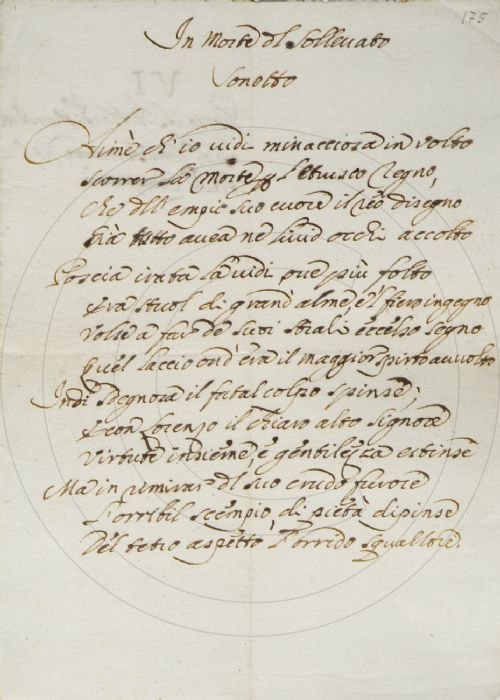 175
In Morte del Sollevato
Sonetto
Aimè ch'io vidi minacciosa in volto
scorrer la Morte p l'Etrusco Regno,
che dell'empio suo cuore il reo disegno
già tutto avea ne lividi occhi accolto
Poscia irata la vidi ove più folto
Era stuol di grand'alme, e'l fiero ingegno
volse a far de suoi strali eccelso segno
quel laccio ond'era il maggior spirto avvolto
Indi sdegnosa il fatal colpo spinse;
E con Lorenzo il chiaro alto signore
virtute insieme, e gentilezza estinse
Ma in remirar del suo crudo furore
l'orribil scempio, di pietà dipinse
Del tetro aspetto l'orrido squallore.